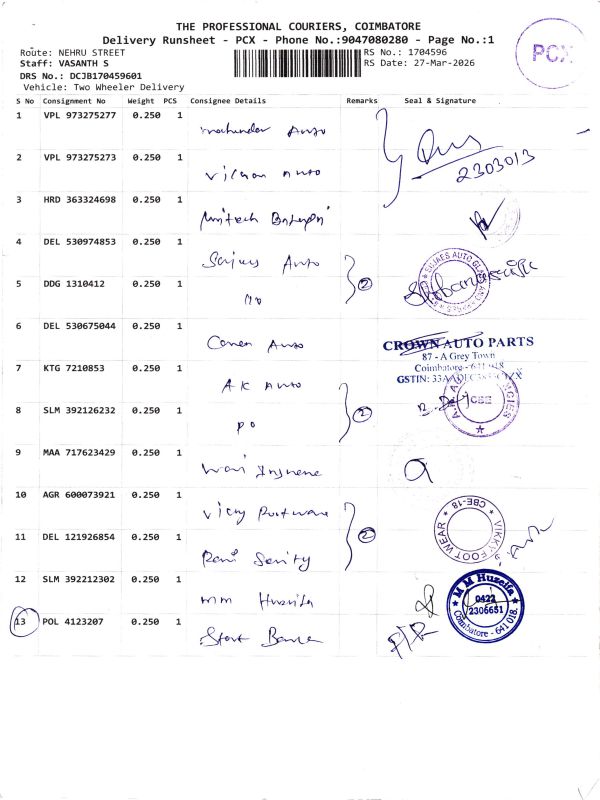 THE PROFESSIONAL COURIERS, COIMBATORE
Delivery Runsheet - PCX - Phone No.:9047080280 - Page No.:1
Route: NEHRU STREET
RS No.: 1704596
Staff: VASANTH S
RS Date: 27-Mar-2026
DRS No.: DCJB170459601
Vehicle: Two Wheeler Delivery
PCX
S No Consignment No Weight PCS Consignee Details Remarks Seal & Signature
1 VPL 973275277 0.250 1 Auto
2303013
2 VPL 973275273 0.250 1 Auto
3 HRD 363324698 0.250 1
4 DEL 530974853 0.250 1 Auto
2
5 DDG 1310412 0.250 1
6 DEL 530675044 0.250 1 Auto
CROWN AUTO PARTS
87 - A Grey Town
Coimbatore - 641 018
GSTIN:
7 KTG 7210853 0.250 1 AK Auto
CBE
8 SLM 392126232 0.250 1 Do
2
9 MAA 717623429 0.250 1
10 AGR 600073921 0.250 1 Vicky Footware
VIKKY FOOT WEAR
CBE-18
2
11 DEL 121926854 0.250 1
12 SLM 392212302 0.250 1 MM Huzaifa
M M Huzeifa
0422
2306651
Coimbatore - 641 018.
13 POL 4123207 0.250 1